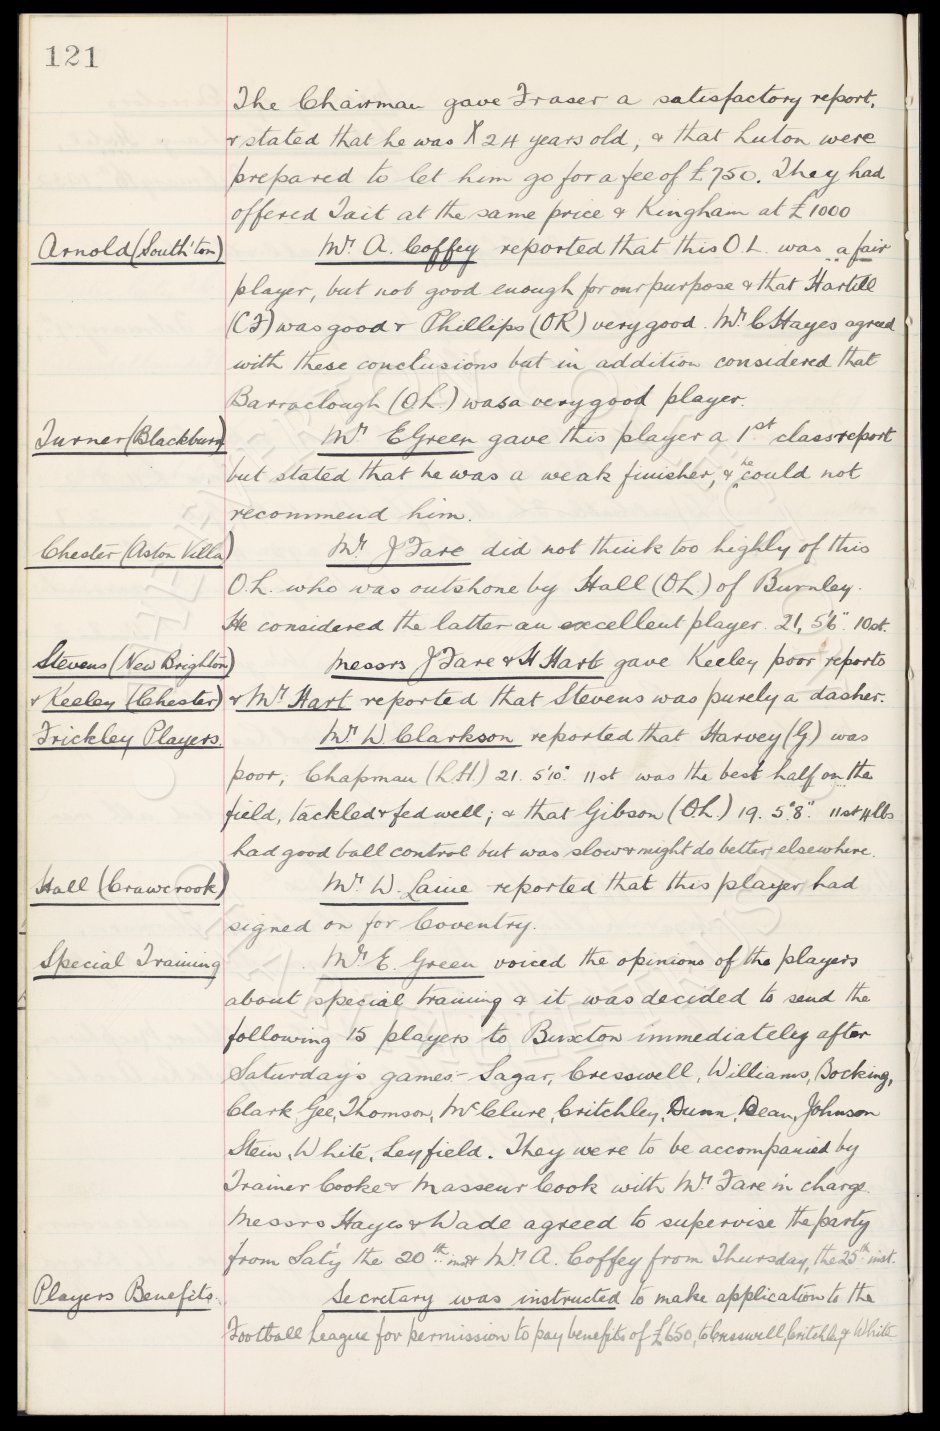 121
The Chairman gave Fraser a satisfactory report,
& stated that he was 24 years old, & that Luton were
prepared to let him go for a fee of £750. They had
offered Tait at the same price & Kingham at £1000
Arnold (South'ton) Mr. A. Coffey reported that this O.L. was a fair
player, but not good enough for our purpose & that Hartill
(CF) was good & Phillips (OR) very good. Mr. C Hayes agreed
with these conclusions but in addition considered that
Barraclough (O.L.) was a very good player.
Turner (Blackburn) Mr. E Green gave this player a 1st class report
but stated that he was a weak finisher, & he could not
recommend him.
Chester (Aston Villa) Mr. J Fare did not think too highly of this
O.L. who was outshone by Hall (OL.) of Burnley.
He considered the latter an excellent player. 21, 5'6" 10st.
Stevens (New Brighton) Messrs J Fare & H Hart gave Keeley poor reports
& Keeley (Chester) & Mr. Hart reported that Stevens was purely a dasher.
Frickley Players. Mr. W. Clarkson reported that Harvey (G) was
poor, Chapman (L.H.) 21. 5'10" 11st was the best half on the
field, tackled & fed well; & that Gibson (O.L.) 19. 5'8" 11st 4lbs
had good ball control but was slow & might do better elsewhere.
Hall (Crawcrook) Mr. W. Laine reported that this player had
signed on for Coventry.
Special Training Mr. E. Green voiced the opinions of the players
about special training & it was decided to send the
following 15 players to Buxton immediately after
Saturday's games:- Sagar, Cresswell, Williams, Bocking,
Clark, Gee, Thomson, McClure, Critchley, Dunn, Dean, Johnson
Stein, White, Leyfield. They were to be accompanied by
Trainer Cooke & Masseur Cook with Mr. Fare in charge.
Messrs Hayes & Wade agreed to supervise the party
from Sat'y the 20th inst & Mr. A. Coffey from Thursday, the 25th inst.
Players Benefits. Secretary was instructed to make application to the
Football League for permission to pay benefits of £650, to Cresswell, Critchley & White